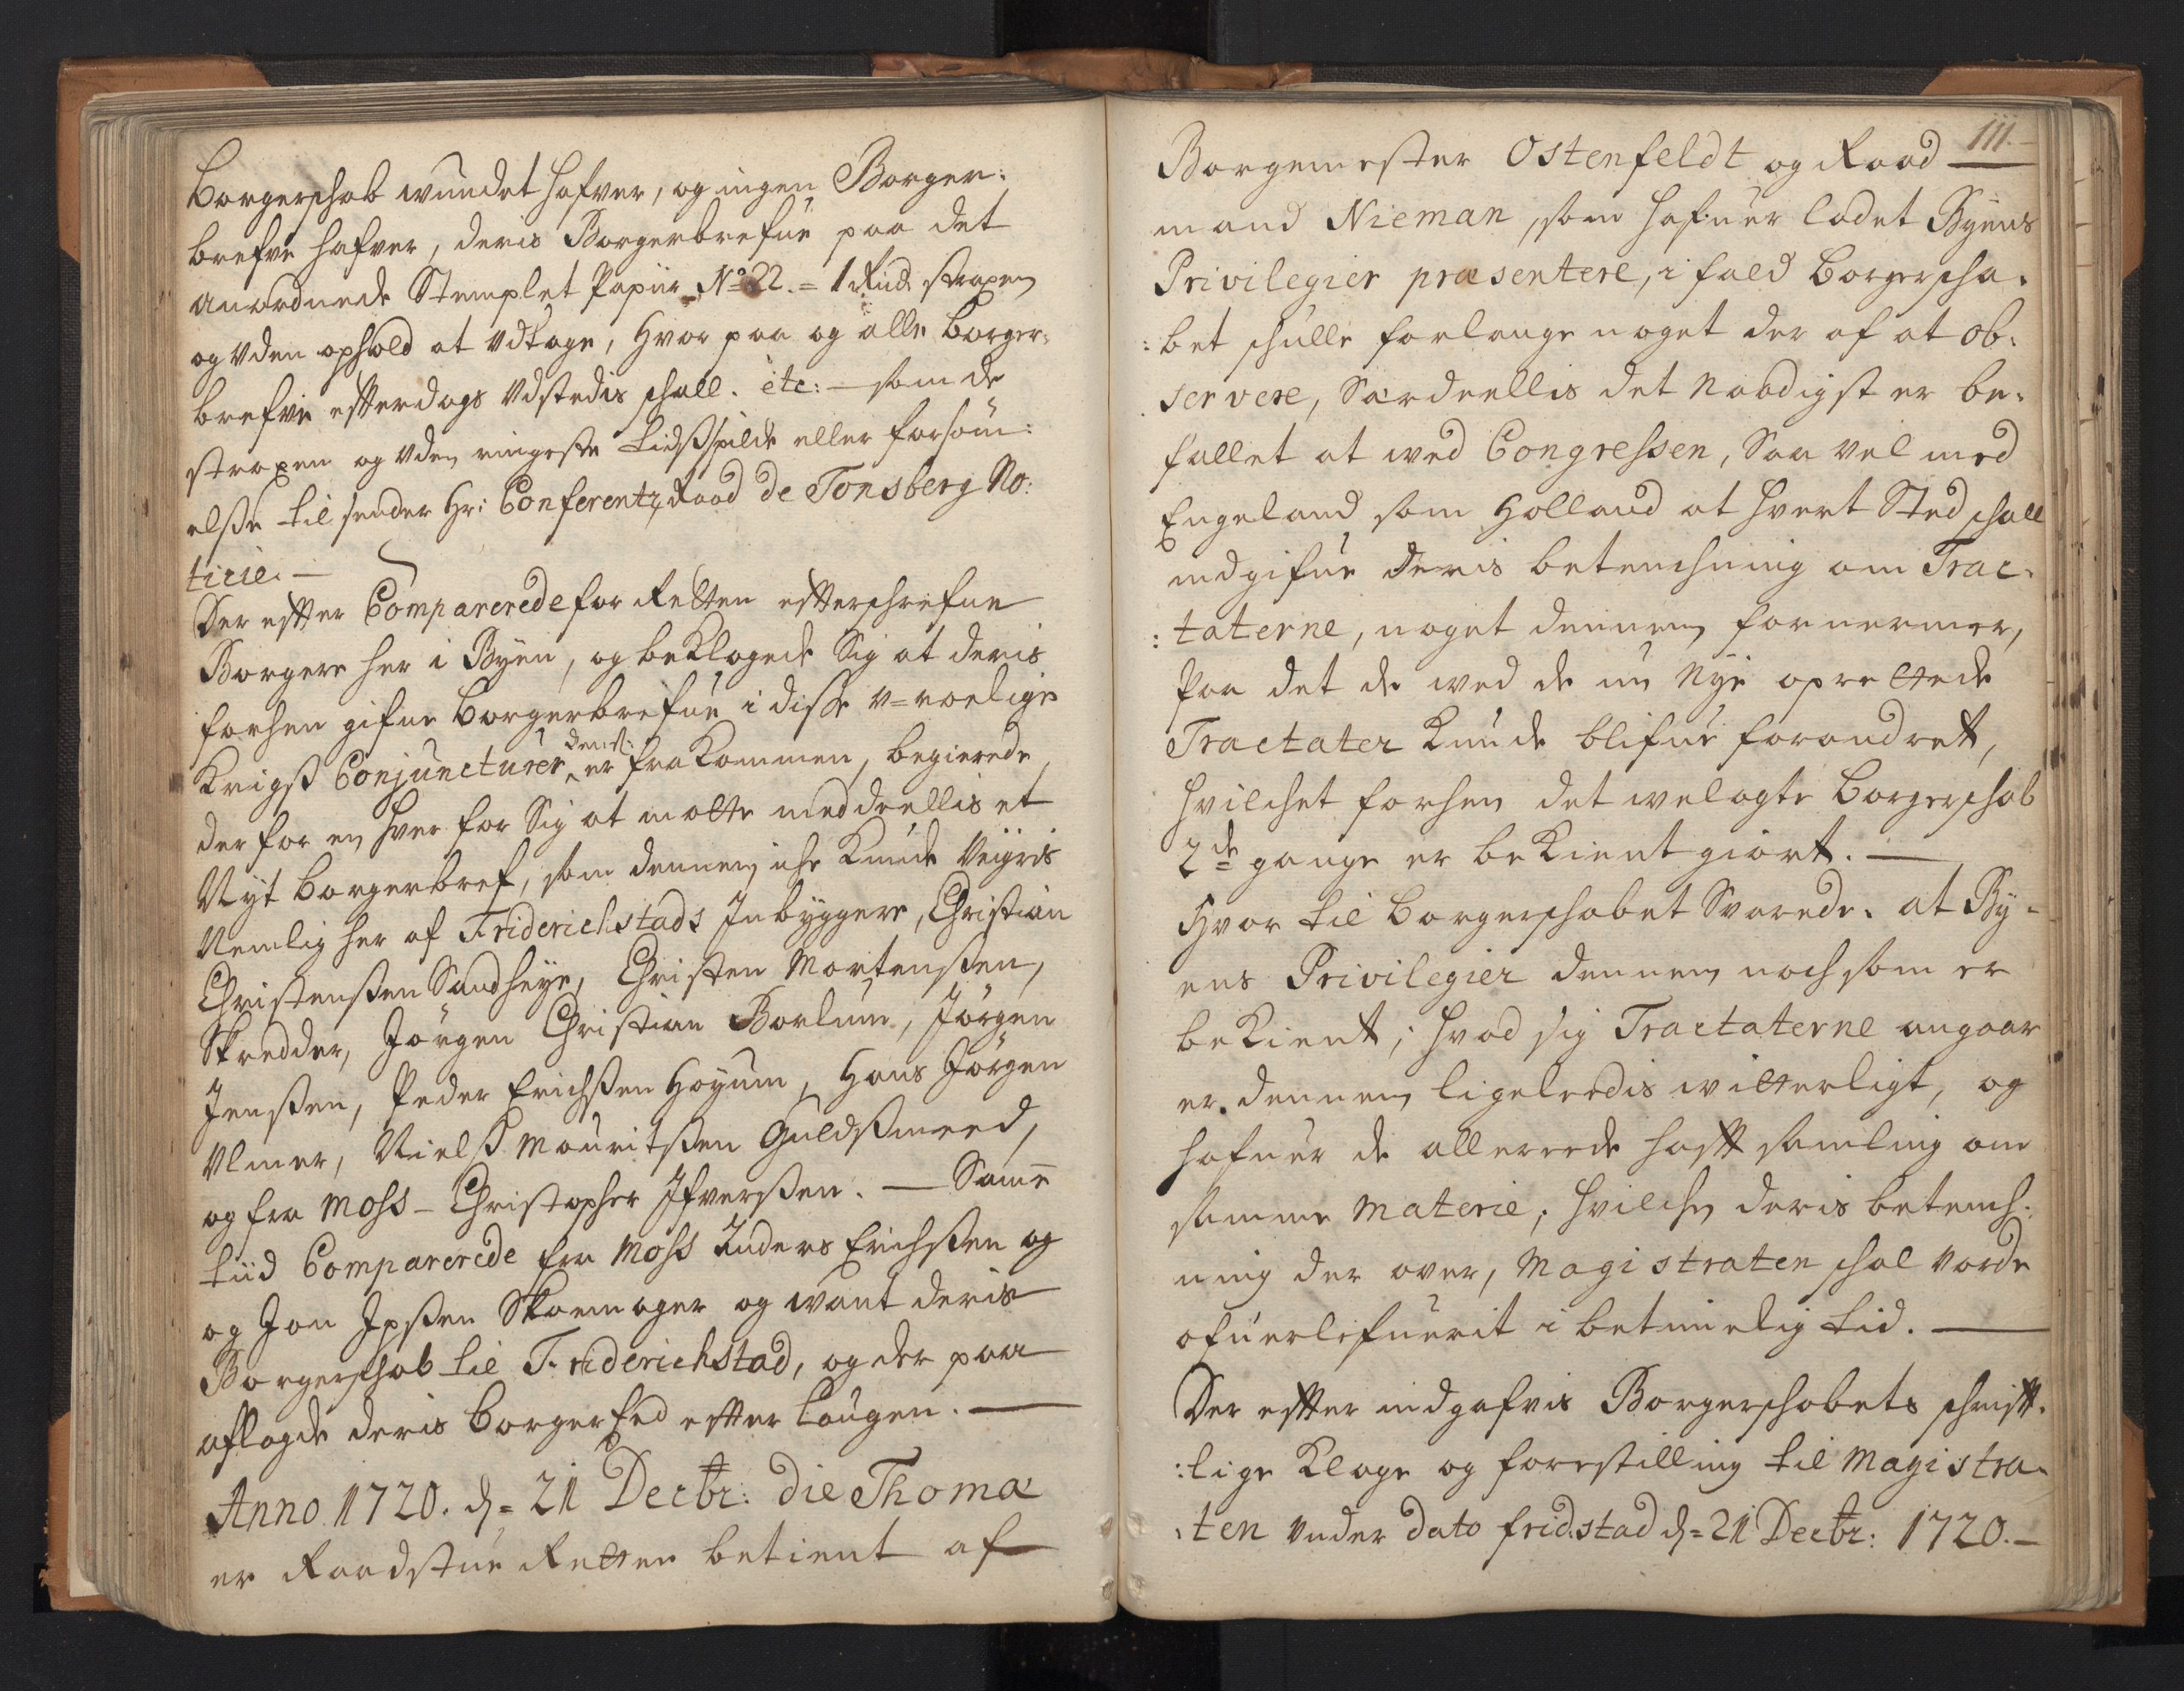 Borgerschab wundet hafver, og ingen Borger:
brefve hafver, deris Borgerbrefue paa det
anordnede Stemplet Papiir No 22. = 1 Rixd. straxen
og uden ophold at udtage, hvor paa og alle Borger:
brefve efterdags udstedis schall. etc: — som de
straxen og uden ringeste tidsspilde eller forsöm:
elße til sender Hr: Conferentz Raad de Tonsberg No:
ticie. —
Der efter Comparerede for Retten efterschrefne
Borgere her i Byen, og beklagede sig at deris
forhen gifne Borgerbrefue i disse u=roelige
Krigß Conjuncturer er fra kommen, begierede
der for en hver for sig at motte meddeellis et
Nyt Borgerbref, som dennem iche kunde veigris
Nemlig her af Friderichstads Inbyggere, Christian
Christenßen Sandheye, Christen Mortenßen,
Skredder, Jörgen Christian Borlum, Jörgen
Jenßen, Peder Erichßen Hoyum, Hans Jörgen
Ulmer, Nielß Mouritßen Guldßmeed,
og fra Moss – Christopher Ifverßen. — Same
tiid Comparerede fra Moss Anders Erichßen og
og Jon Jepßen Skoemager og want deris
Borgerschab til Friderichstad, og der paa
aflagde deris Borger Eed efter Laugen. —
Anno 1720. d= 21 Decbr: die Thomæ
er Raadstue Retten betient af
111.
Borgemester Ostenfeldt og Raad —
mand Nieman, som hafuer ladet Byens
Privilegier præsentere, i fald Borgerscha:
:bet schulle forlange noget der af at ob:
servere, Særdeellis det Naadigst er be:
fallet at wed Congressen, saa vel med
Engeland som Holland at hvert Sted schall
indgifue deris betenchning om Trac:
:taterne, noget dennem fornermer,
Paa det de wed de nu Nye oprettede
Tractater kunde blifue forandret,
hvilchet forhen det welagte Borgerschab
2de gange er bekient giort. —
Hvor til Borgerschabet Svarede. at By:
ens Privilegier dennem noch som er
bekient; hvad sig Tractaterne angaar
er dennem ligeleedis witterligt, og
hafuer de allereede haft samling om
samme Materie; hvilchen deris betench:
ning der over, Magistraten schal vorde
ofuerlefuerit i betimelig tid. —
Der efter indgafvis Borgerschabets schrift:
:lige Klage og forestilling til Magistra:
:ten under dato fridstad d= 21 Decbr: 1720. —